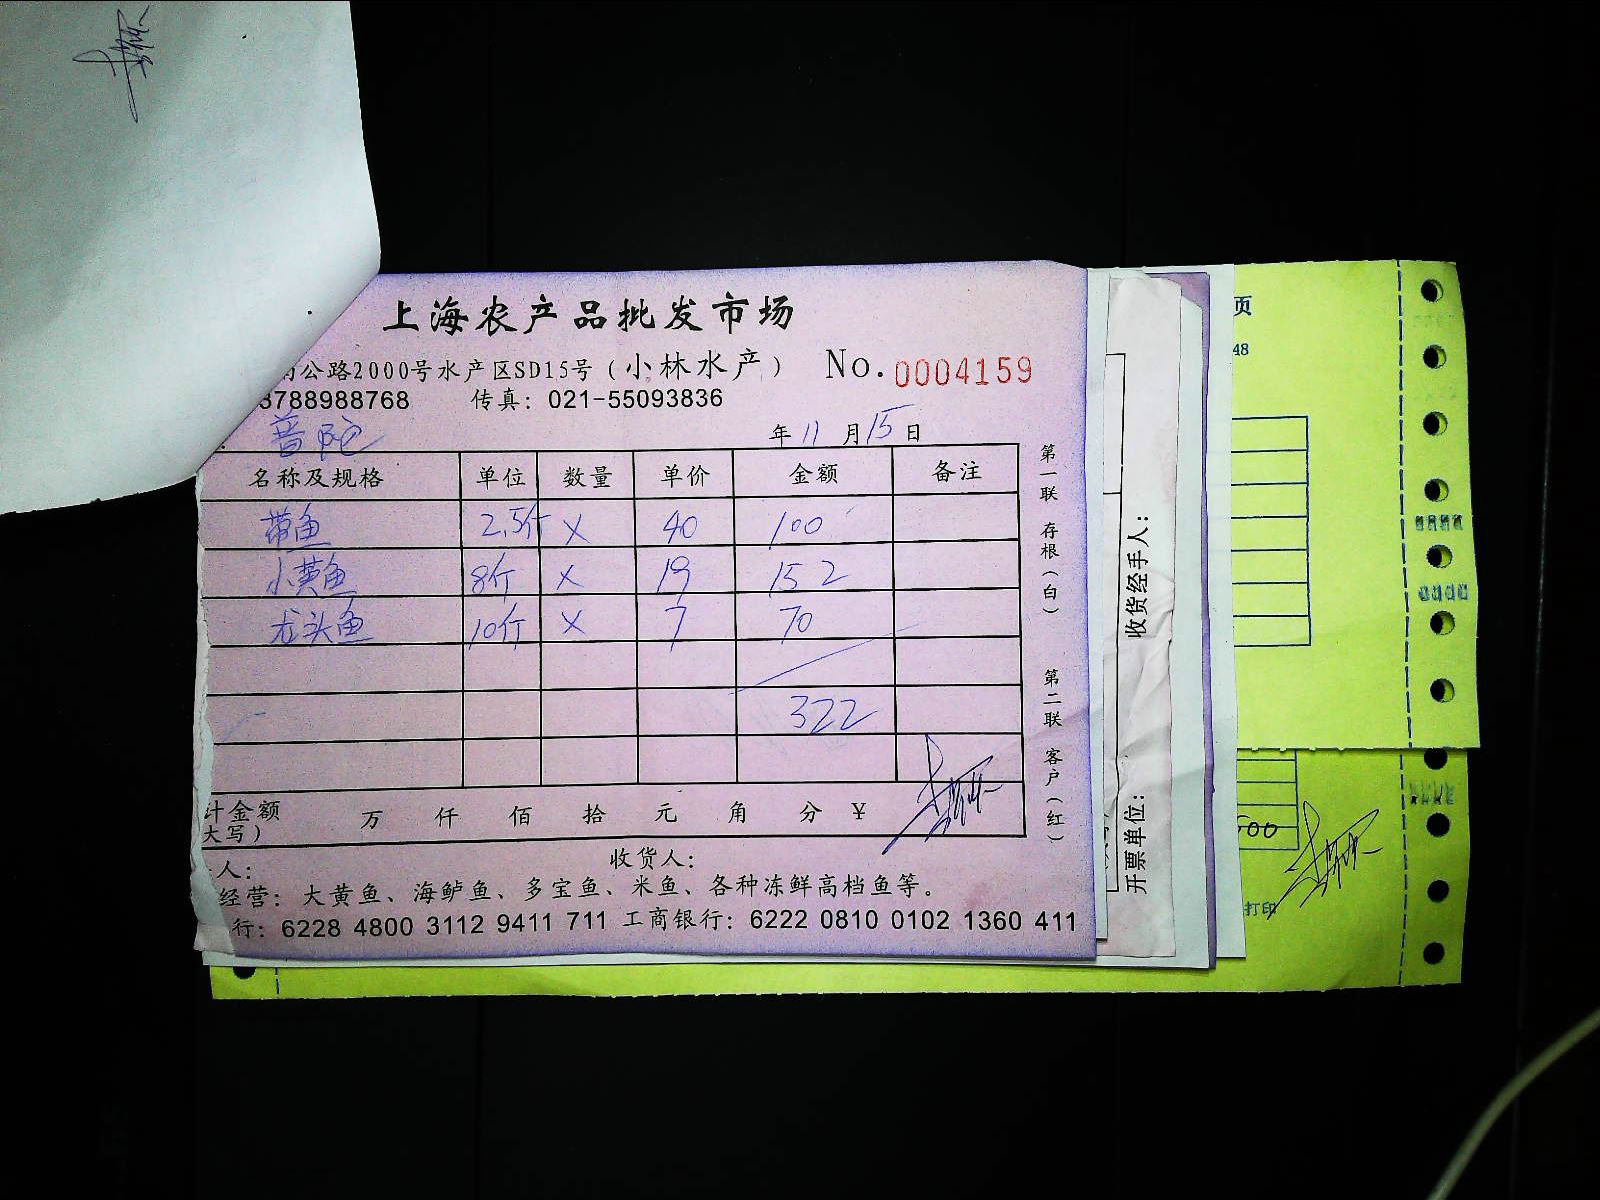 上海农产品批发市场
公路2000号水产区SD15号(小林水产) No.0004159
3788988768 传真：021-55093836
普陀 年11月15日
名称及规格 单位 数量 单价 金额 备注
带鱼 2.5斤 × 40 100
小黄鱼 8斤 × 19 152
龙头鱼 10斤 × 7 70
322
计金额 万 仟 佰 拾 元 角 分 ¥
大写)
人： 收货人：
经营：大黄鱼、海鲈鱼、多宝鱼、米鱼、各种冻鲜高档鱼等。
行：6228 4800 3112 9411 711 工商银行：6222 0810 0102 1360 411
第一联 存根(白) 第二联 客户(红)
收货经手人：
开票单位：
页
48
500
打印